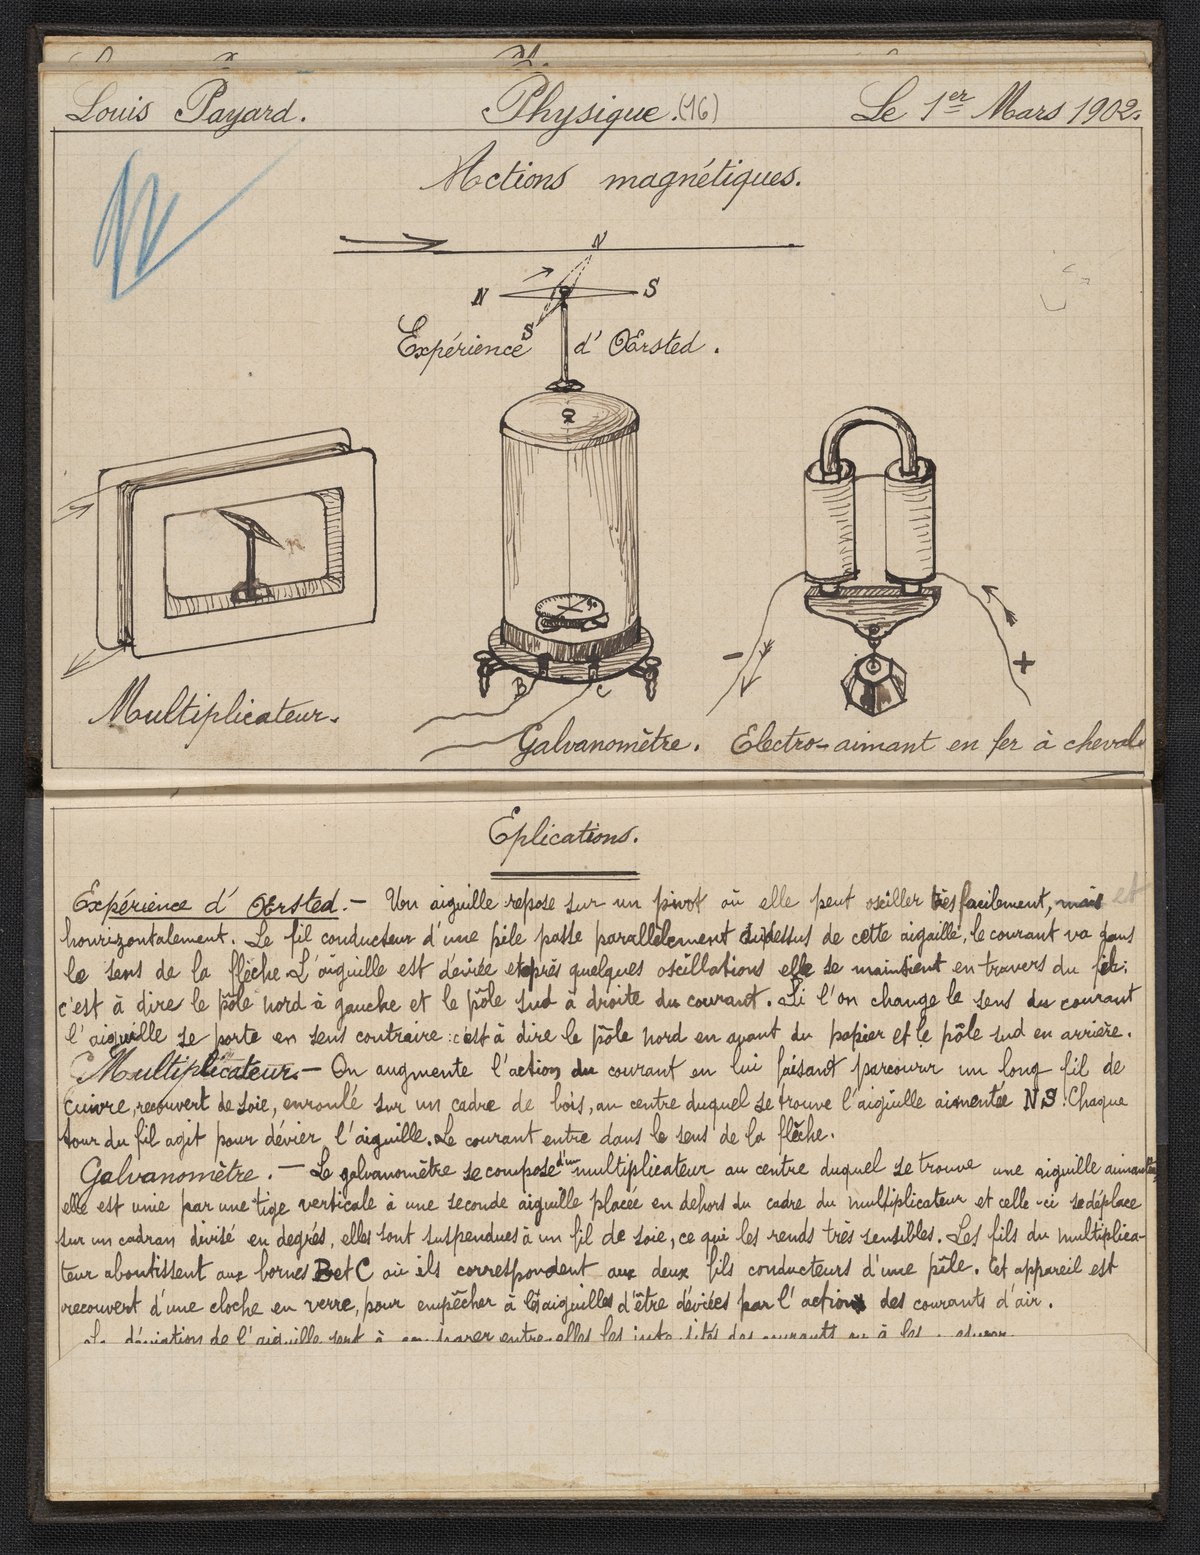 Louis Payard. Physique. (16) Le 1er Mars 1902.
Actions magnétiques.
N
N S
S
Expérience d' Œrsted.
B C
- +
Multiplicateur.
Galvanomètre. Electro-aimant en fer à cheval.
Eplications.
Expérience d' Œrsted. — Une aiguille repose sur un pivot où elle peut osciller très facilement, mais et
hourizontalement. Le fil conducteur d'une pile passe parallèlement dessus de cette aigaille, le courant va dans
le sens de la flêche. L'aiguille est déviée et après quelques oscillations elle se maintient en travers du fil:
c'est à dire le pôle nord à gauche et le pôle sud à droite du courant. Si l'on change le sens du courant
l'aiguille se porte en sens contraire: c'est à dire le pôle nord en avant du papier et le pôle sud en arrière.
Multiplicateur. — On augmente l'action du courant en lui faisant parcourir un long fil de
cuivre, recouvert de soie, enroulé sur un cadre de bois, au centre duquel se trouve l'aiguille aimentée NS. Chaque
tour du fil agit pour dévier l'aiguille. Le courant entre dans le sens de la flêche.
Galvanomètre. — Le galvanomètre se compose d'un multiplicateur au centre duquel se trouve une aiguille aimantée,
elle est unie par une tige verticale à une seconde aiguille placée en dehors du cadre du multiplicateur et celle-ci se déplace
sur un cadran divisé en degrés, elles sont suspendues à un fil de soie, ce qui les rends très sensibles. Les fils du multiplica-
teur aboutissent aux bornes B et C où ils correspondent aux deux fils conducteurs d'une pile. Cet appareil est
recouvert d'une cloche en verre, pour empêcher à les aiguilles d'être déviées par l'action des courants d'air.
La déviation de l'aiguille sert à comparer entre elles les intensités des courants ou à les mesurer.